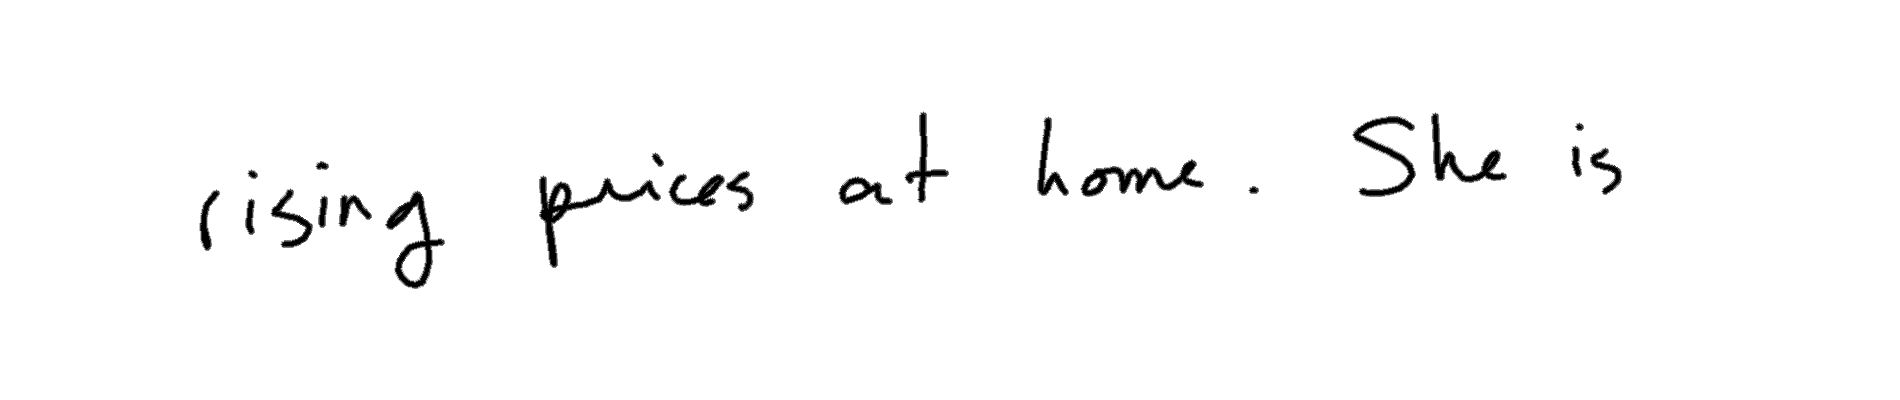 rising prices at home. She is